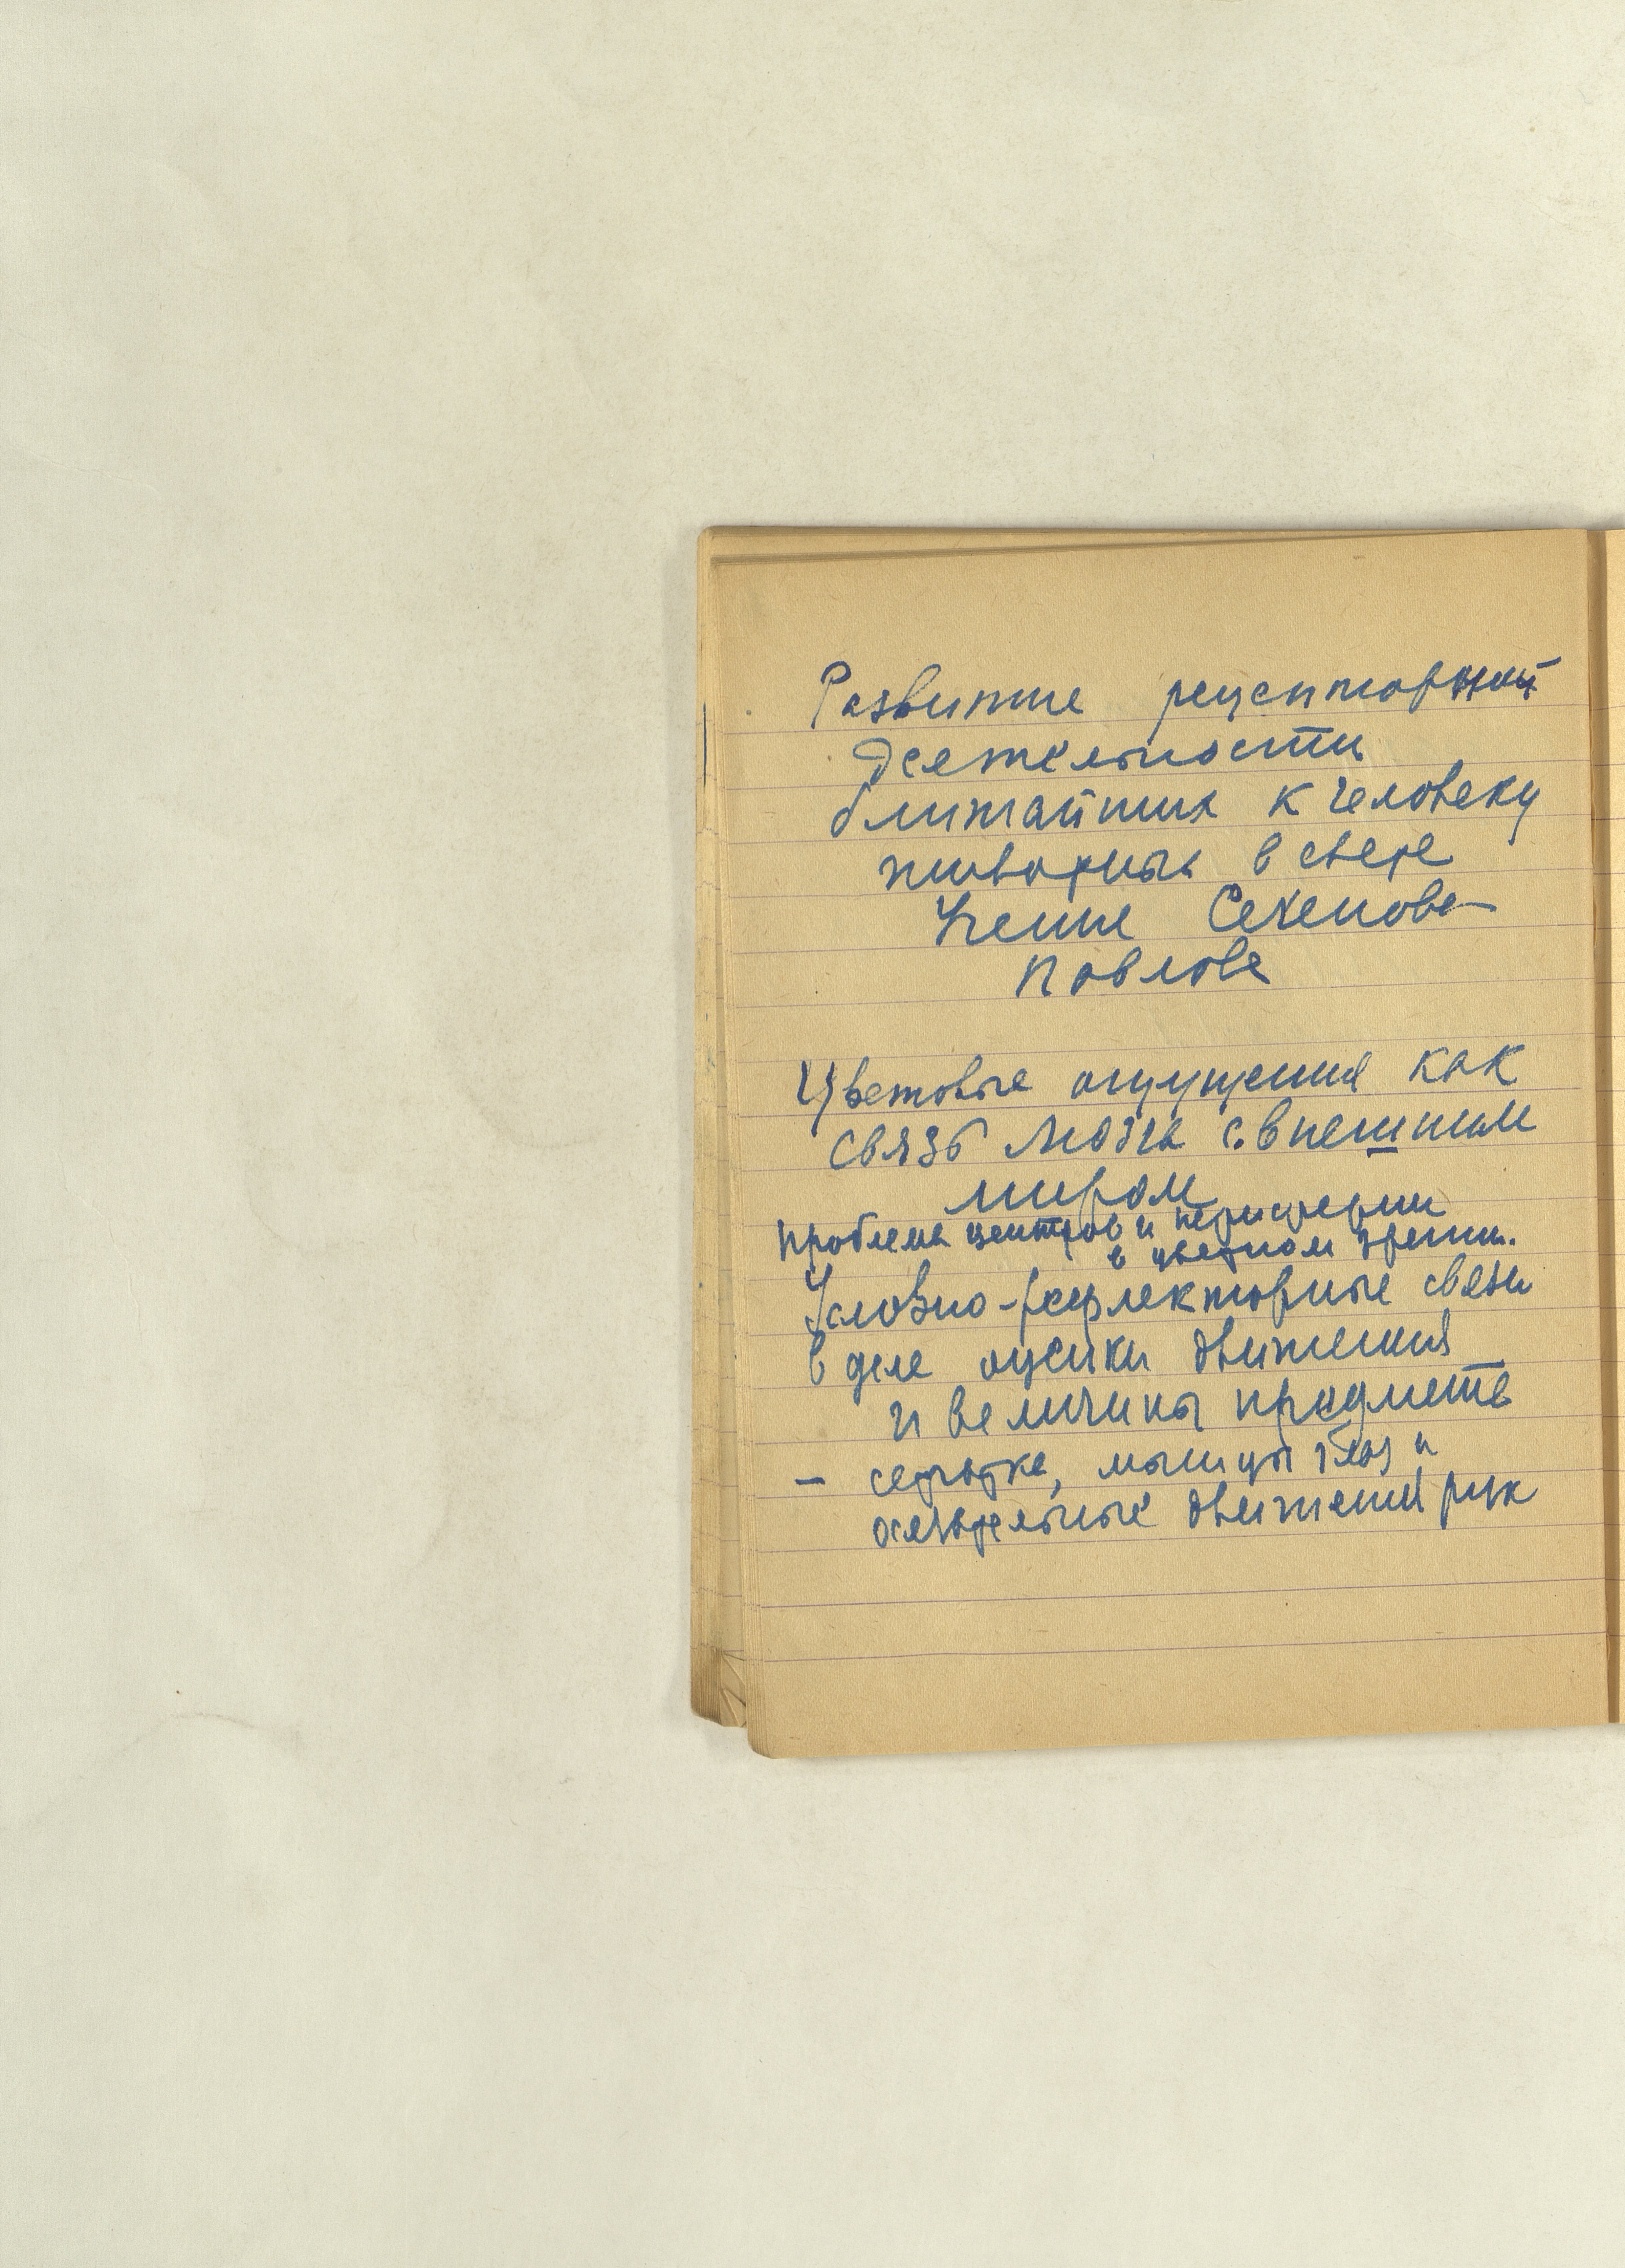 Развитие рецепторной
деятельности
ближайших к человеку
животных в свете
Учения Сеченова-
Павлова
Цветовые ощущения как
связь мозга с внешним
миром
Проблема центров и периферии
в цветном зрении.
Условно-рефлекторные связи
в деле оценки движения
и величины предметв
- сетчатка, мышцы глаз и
осязательные движений рук